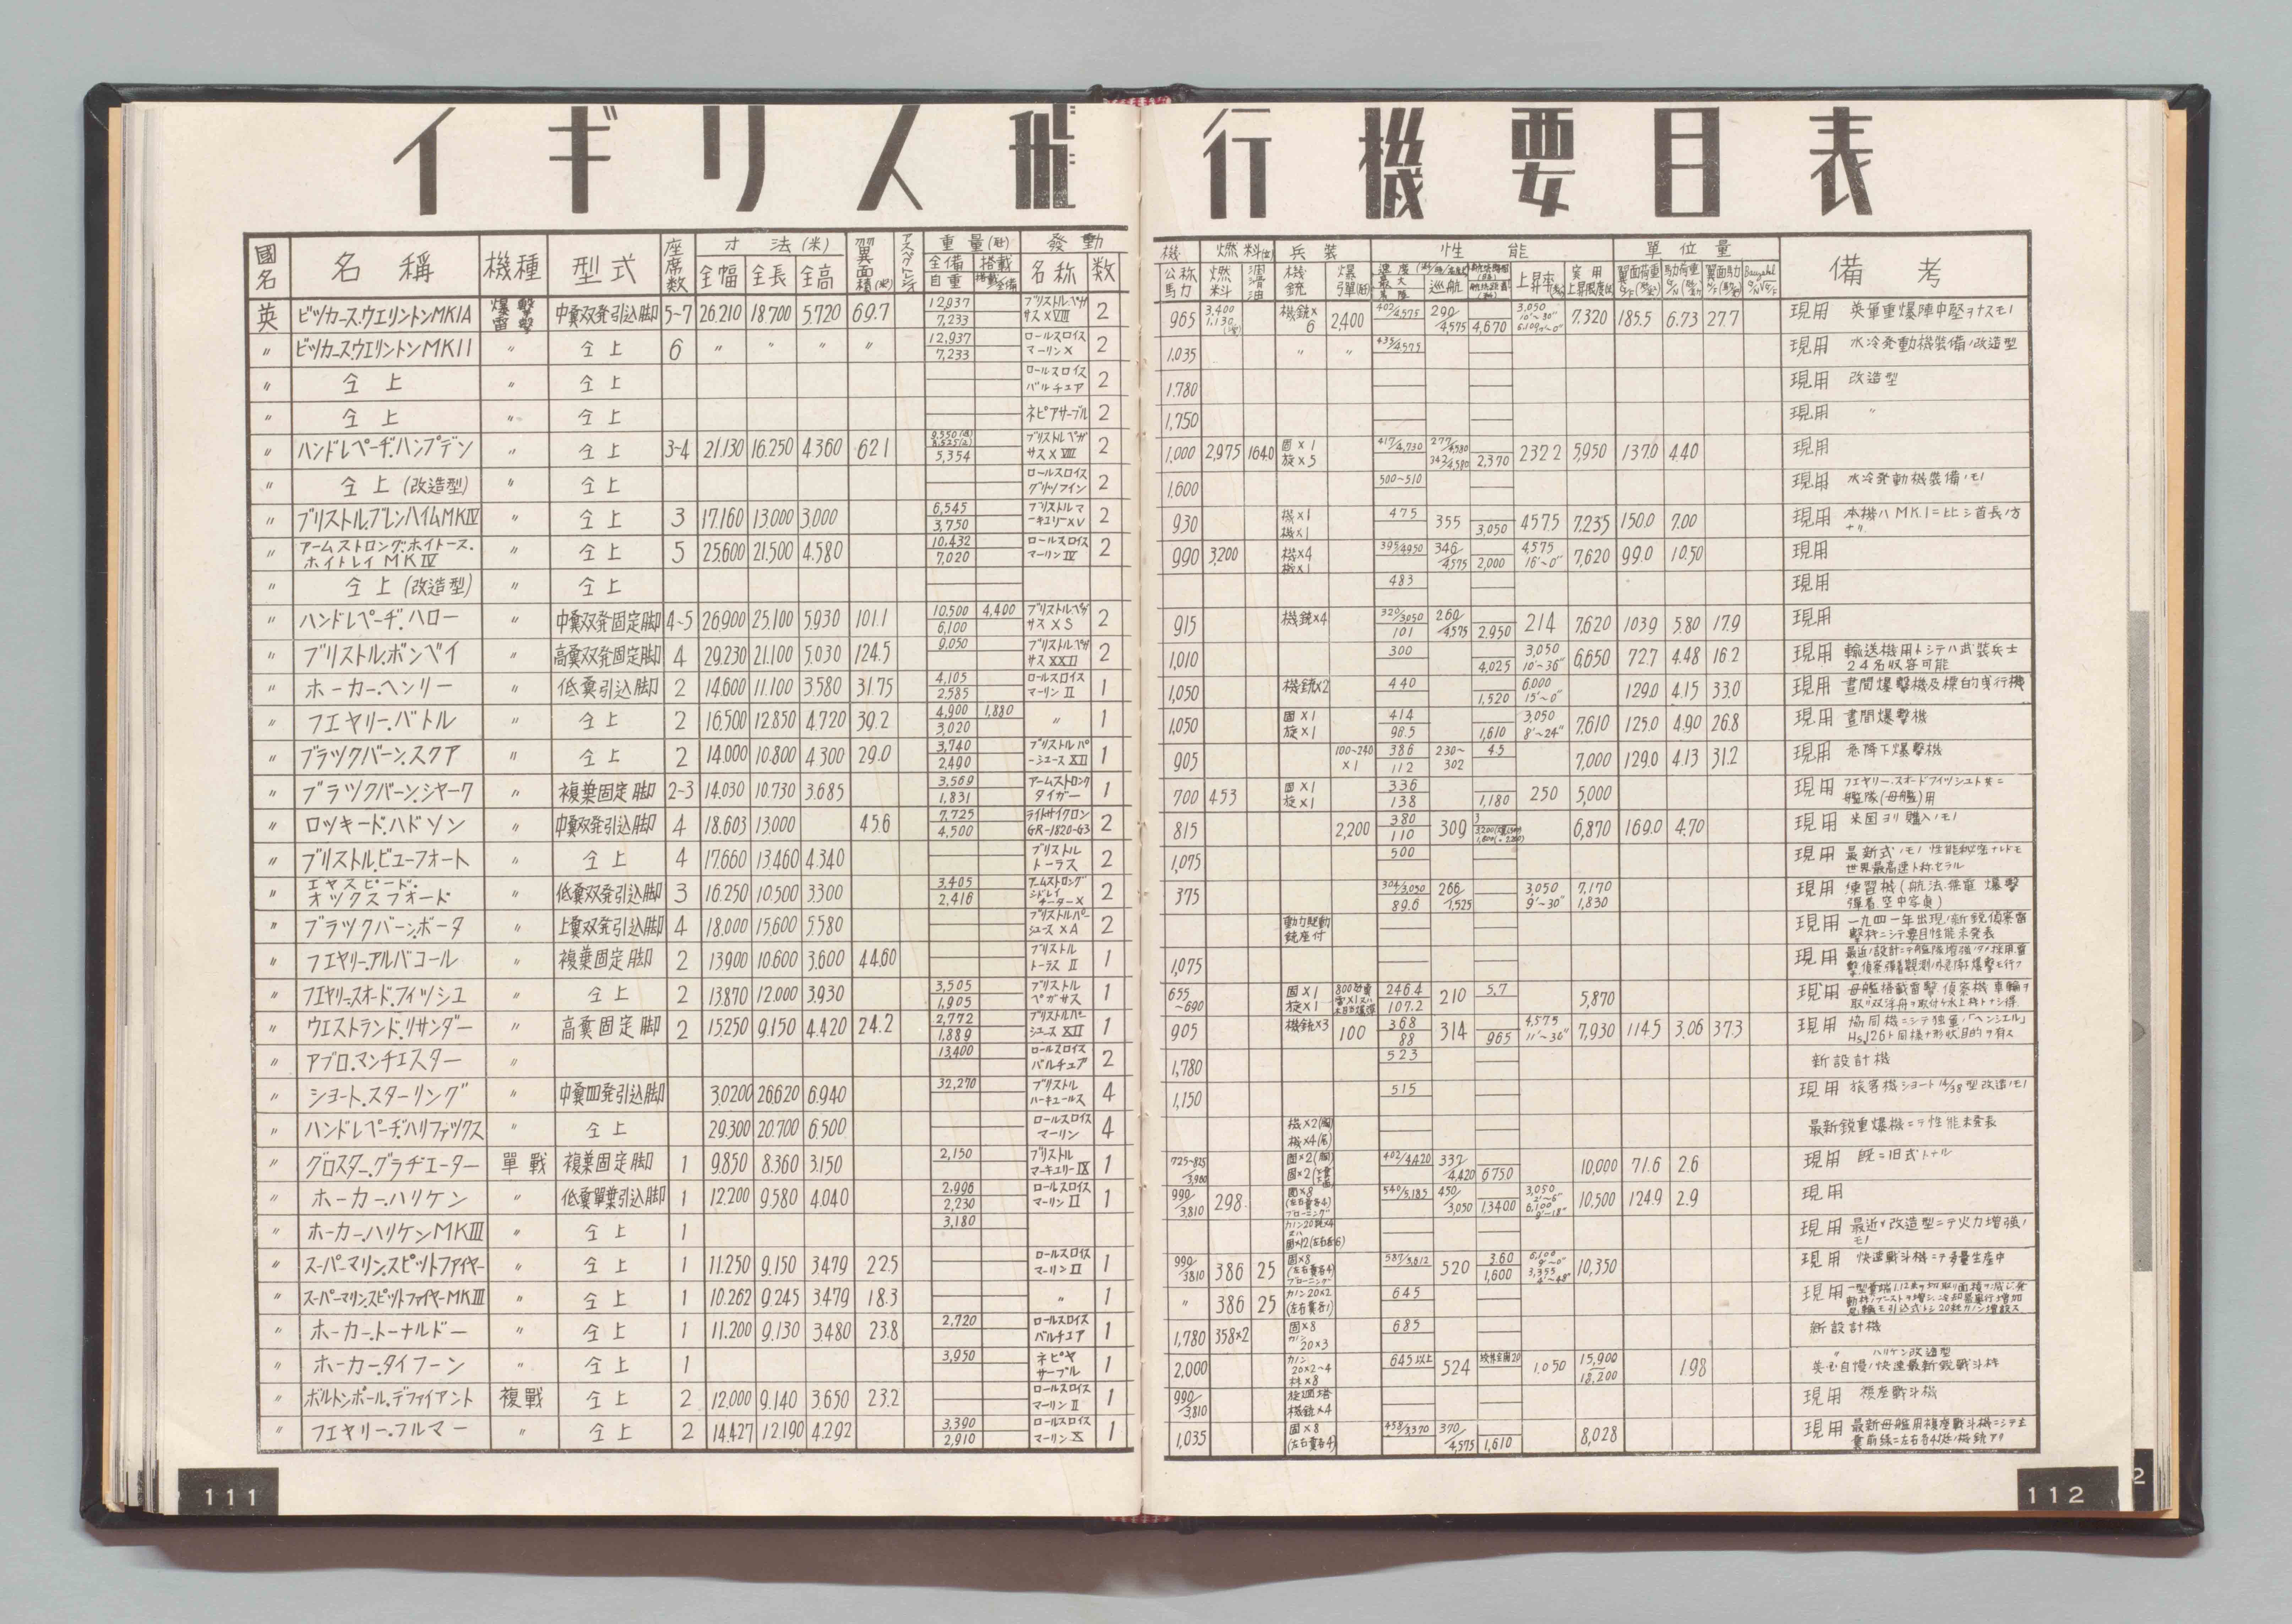 イギリス飛行機要目表
國名 名稱 機種 型式 座席数 寸法(米) 全幅 全長 全高 翼面積(米²) アスペクトレシオ 重量(瓩) 全備 自重 搭載 搭載/全備 發動 名称 数
英 ビツカース.ウエリントンMK1A 爆撃 雷撃 中翼双発引込脚 5-7 26.210 18.700 5.720 69.7 12,937 7,233 ブリストル.ペガサスXVIII 2
〃 ビツカース.ウエリントンMK11 〃 仝上 6 〃 〃 〃 〃 12,937 7,233 ロールスロイスマーリンX 2
〃 仝上 〃 仝上 ロールスロイスバルチュア 2
〃 仝上 〃 仝上 ネピアサーブル 2
〃 ハンドレペーヂ.ハンプデン 〃 仝上 3-4 21.130 16.250 4.360 62.1 5,354 ブリストルペガサスXVIII 2
〃 仝上(改造型) 〃 仝上 ロールスロイスグリツフイン 2
〃 ブリストル.ブレンハイムMKIV 〃 仝上 3 17.160 13.000 3.000 6,545 3,750 ブリストルマーキュリーXV 2
〃 アームストロング.ホイトース.ホイトレイMKIV 〃 仝上 5 25.600 21.500 4.580 10,432 7,020 ロールスロイスマーリンIV 2
〃 仝上(改造型) 〃 仝上
〃 ハンドレペーヂ.ハロー 〃 中翼双発固定脚 4-5 26.900 25.100 5.930 101.1 10,500 6,100 4,400 ブリストルペガサスXS 2
〃 ブリストル.ボンベイ 〃 高翼双発固定脚 4 29.230 21.100 5.030 124.5 9,050 ブリストル.ペガサスXXII 2
〃 ホーカー.ヘンリー 〃 低翼引込脚 2 14.600 11.100 3.580 31.75 4,105 2,585 ロールスロイスマーリンII 1
〃 フエヤリー.バトル 〃 仝上 2 16.500 12.850 4.720 39.2 4,900 3,020 1,880 〃 1
〃 ブラツクバーン.スクア 〃 仝上 2 14.000 10.800 4.300 29.0 3,740 2,490 ブリストルパーシユースXII 1
〃 ブラツクバーン.シヤーク 〃 複葉固定脚 2-3 14.030 10.730 3.685 3,569 1,831 アームストロングタイガー 1
〃 ロツキード.ハドソン 〃 中翼双発引込脚 4 18.603 13.000 45.6 7,725 4,500 ライトサイクロンGR-1820-G3 2
〃 ブリストル.ビューフォート 〃 仝上 4 17.660 13.460 4.340 ブリストルトーラス 2
〃 エヤスピード.オックスフォード 〃 低翼双発引込脚 3 16.250 10.500 3.300 3,405 2,416 アームストロングシドレイチーターX 2
〃 ブラツクバーン.ボータ 〃 上翼双発引込脚 4 18.000 15.600 5.580 ブリストルパーシュースXA 2
〃 フエヤリー.アルバコール 〃 複葉固定脚 2 13.900 10.600 3.600 44.60 ブリストルトーラスII 1
〃 フエヤリースオード.フイツシユ 〃 仝上 2 13.870 12.000 3.930 3,505 1,905 ブリストルペガサス 1
〃 ウエストランド.リサンダー 〃 高翼固定脚 2 15.250 9.150 4.420 24.2 2,772 1,889 ブリストルパーシュースXII 1
〃 アブロ.マンチエスター 〃 13,400 ロールスロイスバルチュア 2
〃 シヨート.スターリング 〃 中翼四発引込脚 3.0200 26.620 6.940 32,270 ブリストルハーキュールス 4
〃 ハンドレペーヂ.ハリファックス 〃 仝上 29.300 20.700 6.500 ロールスロイスマーリン 4
〃 グロスター.グラヂエーター 單戰 複葉固定脚 1 9.850 8.360 3.150 2,150 ブリストルマーキュリーIX 1
〃 ホーカー.ハリケン 〃 低翼單葉引込脚 1 12.200 9.580 4.040 2,996 2,230 ロールスロイスマーリンII 1
〃 ホーカー.ハリケンMKIII 〃 仝上 1 3,180
〃 スーパーマリン.スピツトファイヤー 〃 仝上 1 11.250 9.150 3.479 22.5 ロールスロイスマーリンII 1
〃 スーパーマリン.スピツトファイヤーMKIII 〃 仝上 1 10.262 9.245 3.479 18.3 〃 1
〃 ホーカー.トーナルドー 〃 仝上 1 11.200 9.130 3.480 23.8 2,720 ロールスロイスバルチュア 1
〃 ホーカー.タイフーン 〃 仝上 1 3,950 ネピヤサーブル 1
〃 ボルトンポール.デファイアント 複戰 仝上 2 12.000 9.140 3.650 23.2 ロールスロイスマーリンII 1
〃 フエヤリー.フルマー 〃 仝上 2 14.427 12.190 4.292 3,390 2,910 ロールスロイスマーリンX 1
111
機 公称馬力 燃料 燃料 潤滑油 兵装 機銃 爆弾(瓩) 性能 速度 最大 着陸 巡航 上昇率 実用上昇限度 單位量 翼面荷重 馬力荷重 翼面馬力 備考
965 3,400 1,130 機銃×6 2,400 402/4,575 290/4,575 4,670 3,050 10'~30" 7.320 185.5 6.73 27.7 現用 英軍重爆陣中堅ヲナスモノ
1,035 〃 〃 435/4,575 現用 水冷発動機装備ノ改造型
1.780 現用 改造型
1,750 現用 〃
1,000 2,975 164.0 固×1 旋×5 417/4,730 277/4,580 342/4,580 2,370 232.2 5,950 137.0 4.40 現用
1,600 500~510 現用 水冷発動機装備ノモノ
930 機×1 機×1 475 355 3,050 457.5 7.235 150.0 7.00 現用 本機ハMK.1ニ比シ首長ノ方ナリ
990 3,200 機×4 機×1 395/4950 346/4,575 2,000 4,575 16'~0" 7,620 99.0 10.50 現用
483 現用
915 機銃×4 320/3,050 101 260/4,575 2,950 214 7,620 103.9 5.80 17.9 現用
1,010 300 4,025 3,050 10'~36" 6,650 72.7 4.48 16.2 現用 輸送機用トシテハ武装兵士24名収容可能
1,050 機銃×2 440 1,520 6,000 15'~0" 129.0 4.15 33.0 現用 晝間爆撃機及標的曳行機
1,050 固×1 旋×1 414 96.5 1,610 3,050 8'~24" 7,610 125.0 4.90 26.8 現用 晝間爆撃機
905 100~240×1 386 112 230~302 4.5 7,000 129.0 4.13 31.2 現用 急降下爆撃機
700 453 固×1 旋×1 336 138 1,180 250 5,000 現用 フエヤリー.スオードフイツシュト共ニ艦隊(母艦)用
815 2,200 380 110 309 6,870 169.0 4.70 現用 米国ヨリ購入ノモノ
1,075 500 現用 最新式ノモノ性能秘密ナルドモ世界最高速ト称セラル
375 304/3,050 89.6 266/1,525 3,050 9'~30" 7,170 1,830 現用 練習機(航法.無電 爆撃 彈着.空中写真)
動力駆動銃座付 現用 一九四一年出現ノ新鋭偵察雷撃機ニシテ要目性能未発表
1,075 現用
655~690 固×1 旋×1 246.4 107.2 210 5.7 5,870 現用 母艦搭載雷撃.偵察機
905 機銃×3 100 368 88 314 965 4,575 11'~36" 7,930 114.5 3.06 37.3 現用 協同機ニシテ独軍ノ「ヘンシエル」Hs126ト同様ナ形状目的ヲ有ス
1,780 523 新設計機
1,150 515 現用 旅客機ショート14/38型改造ノモノ
機×2(胴) 機×4(尾) 最新鋭重爆機ニテ性能未発表
725~825/3,960 固×2(胴) 固×2 402/4,420 337/4,420 6750 10,000 71.6 2.6 現用 既ニ旧式トナル
990/3,810 298 固×8(左右翼各4)ブローニング 540/5,185 450/3,050 1,340.0 3,050 2'~6" 10,500 124.9 2.9 現用
カノン20粍×4 又ハ 固×12(左右各6) 現用 最近ノ改造型ニテ火力増強ノモノ
990/3810 386 25 固×8(左右翼各4)ブローニング 587/5,612 520 360 1,600 10,350 現用 快速戰斗機ニテ多量生産中
〃 386 25 カノン20×2(左右翼各1) 645 現用
1,780 358×2 固×8 カノン20×3 685 新設計機
2,000 カノン20×2~4 機×8 645以上 524 1.050 15,900~18,200 1.98 〃 ハリケン改造型 英国自慢ノ快速最新鋭戰斗機
990/3,810 旋廻塔機銃×4 現用 複座戰斗機
1,035 固×8(左右翼各4) 458/3,370 370/4,575 1,610 8,028 現用 最新母艦用複座戰斗機ニシテ主翼前縁ニ左右各4挺ノ機銃アリ
112
2